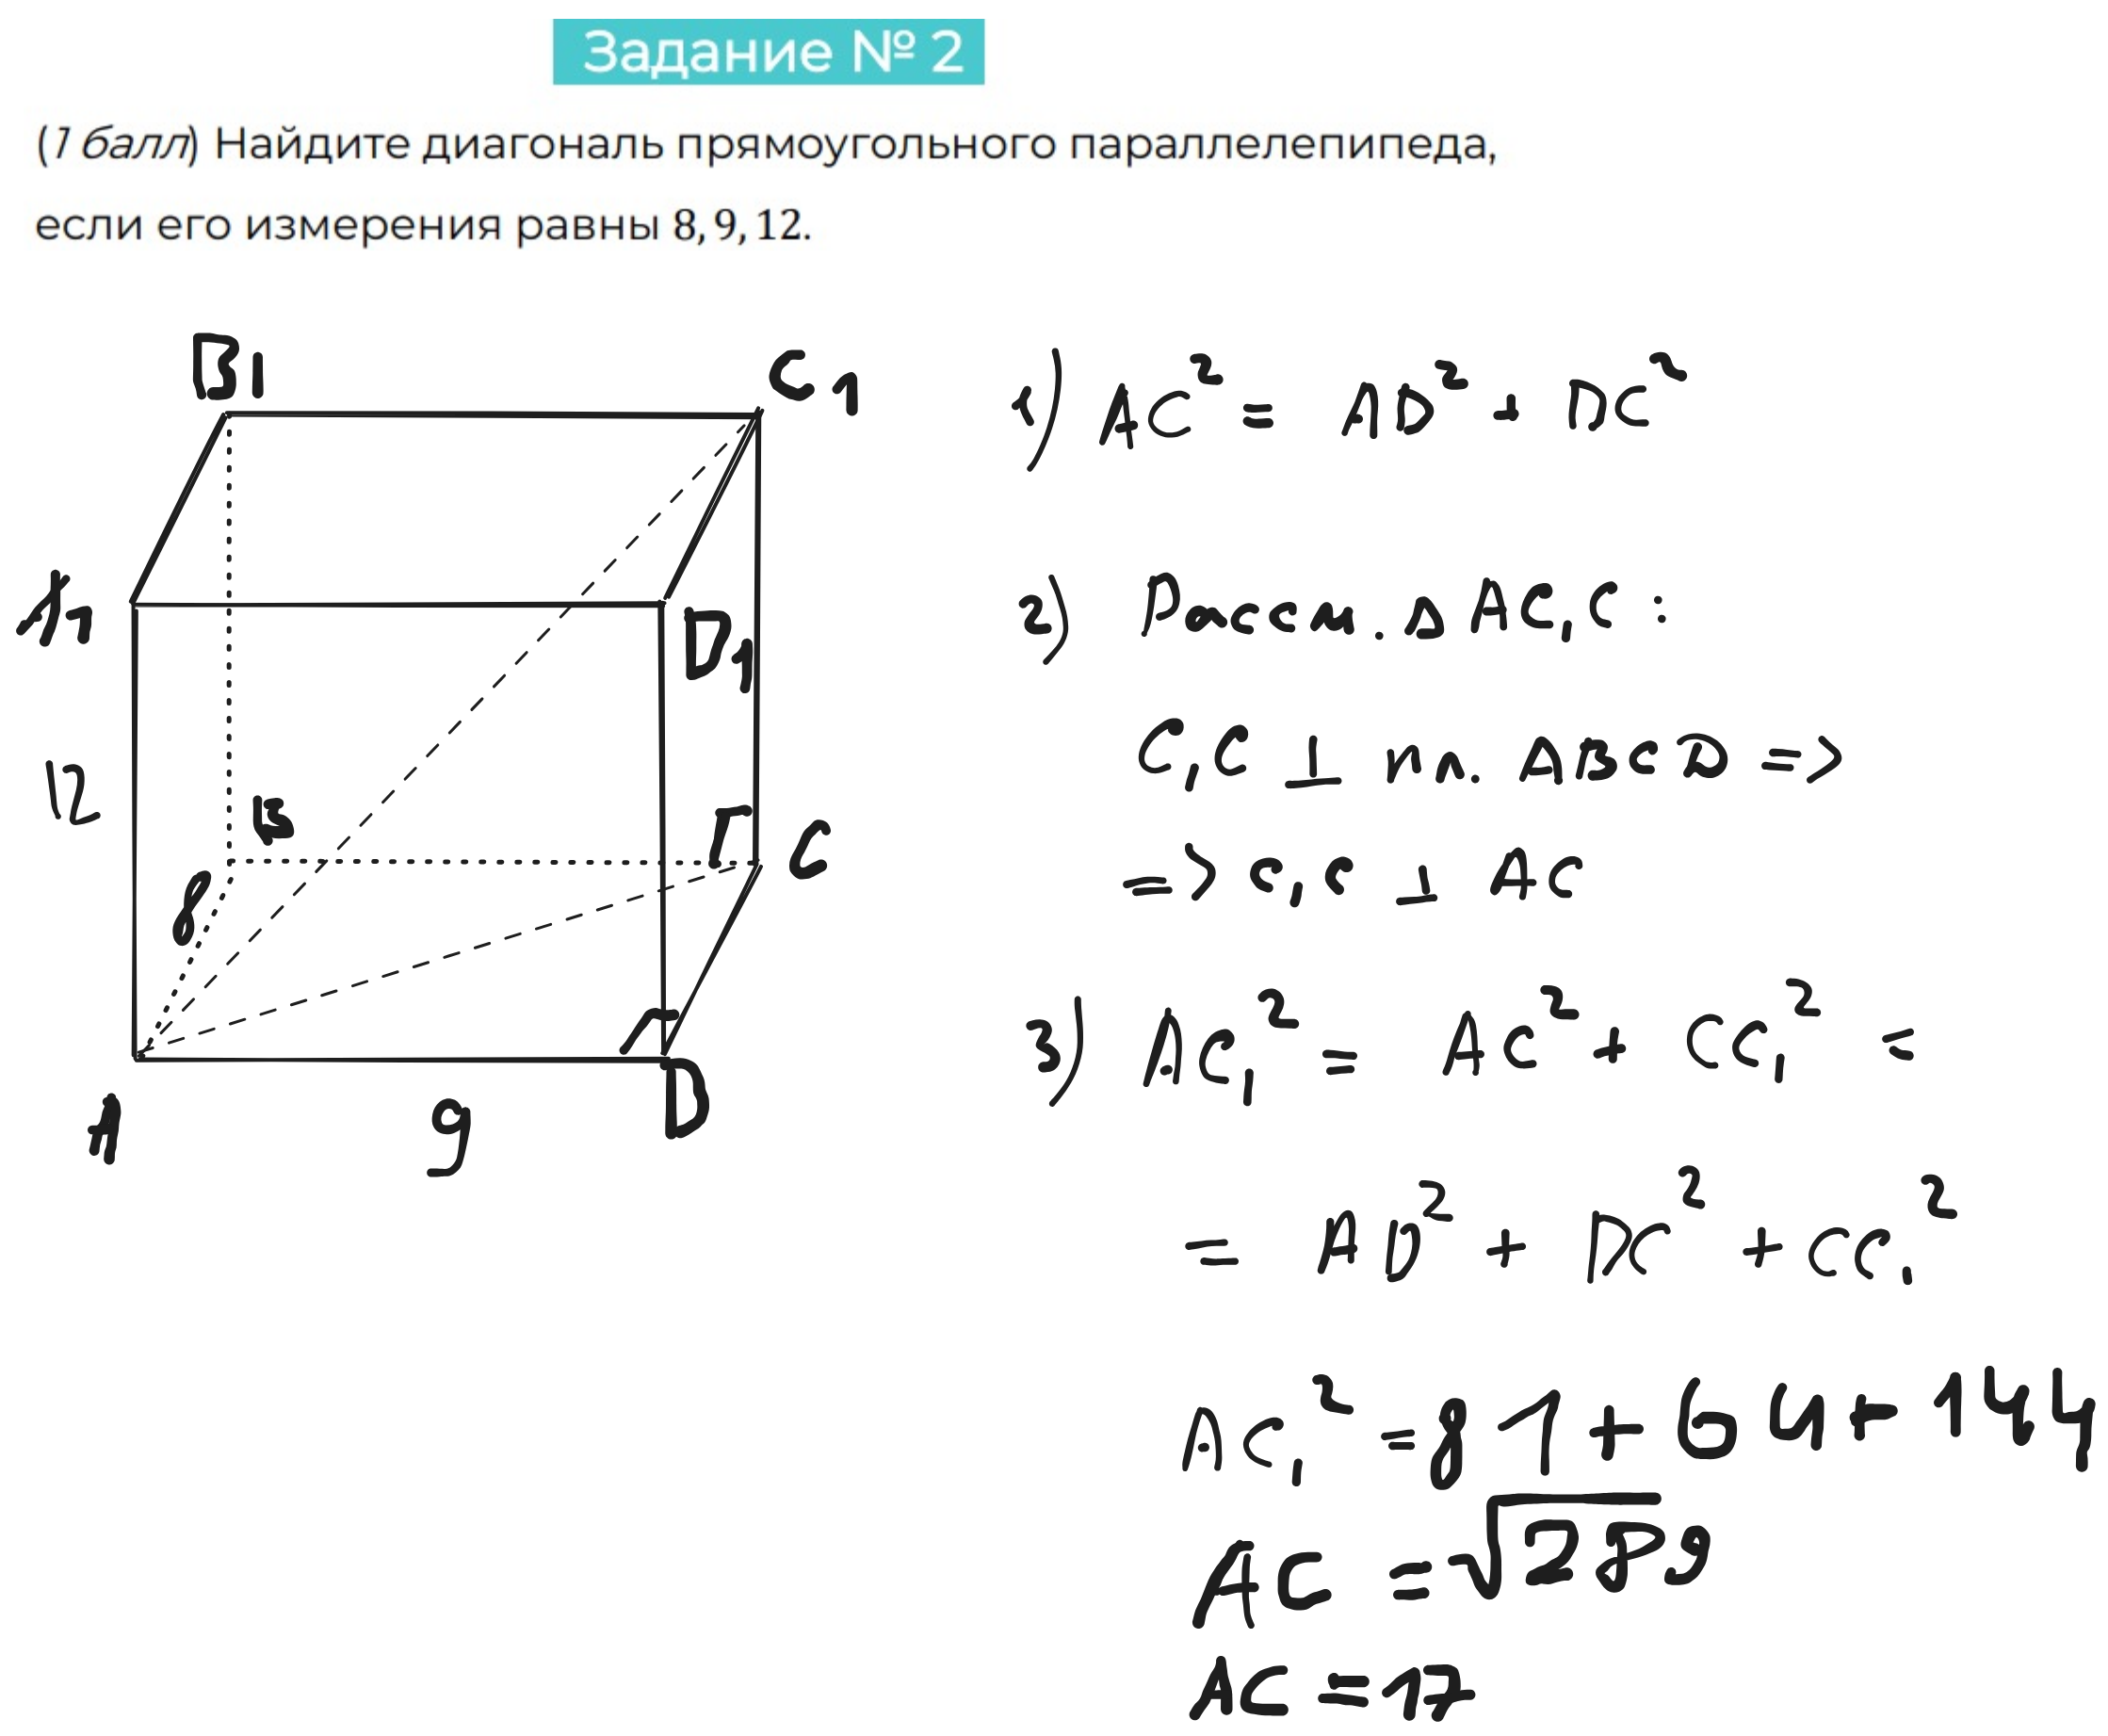 Задание № 2
(1 балл) Найдите диагональ прямоугольного параллелепипеда,
если его измерения равны 8, 9, 12.
B1
C1
A1
D1
12
B
C
8
A
9
D
1) AC² = AD² + DC²
2) Рассм. Δ AC₁C :
C₁C ⊥ пл. ABCD =>
=> C₁C ⊥ AC
3) AC₁² = AC² + CC₁² =
= AD² + DC² + CC₁²
AC₁² = 81 + 64 + 144
AC = √289
AC = 17